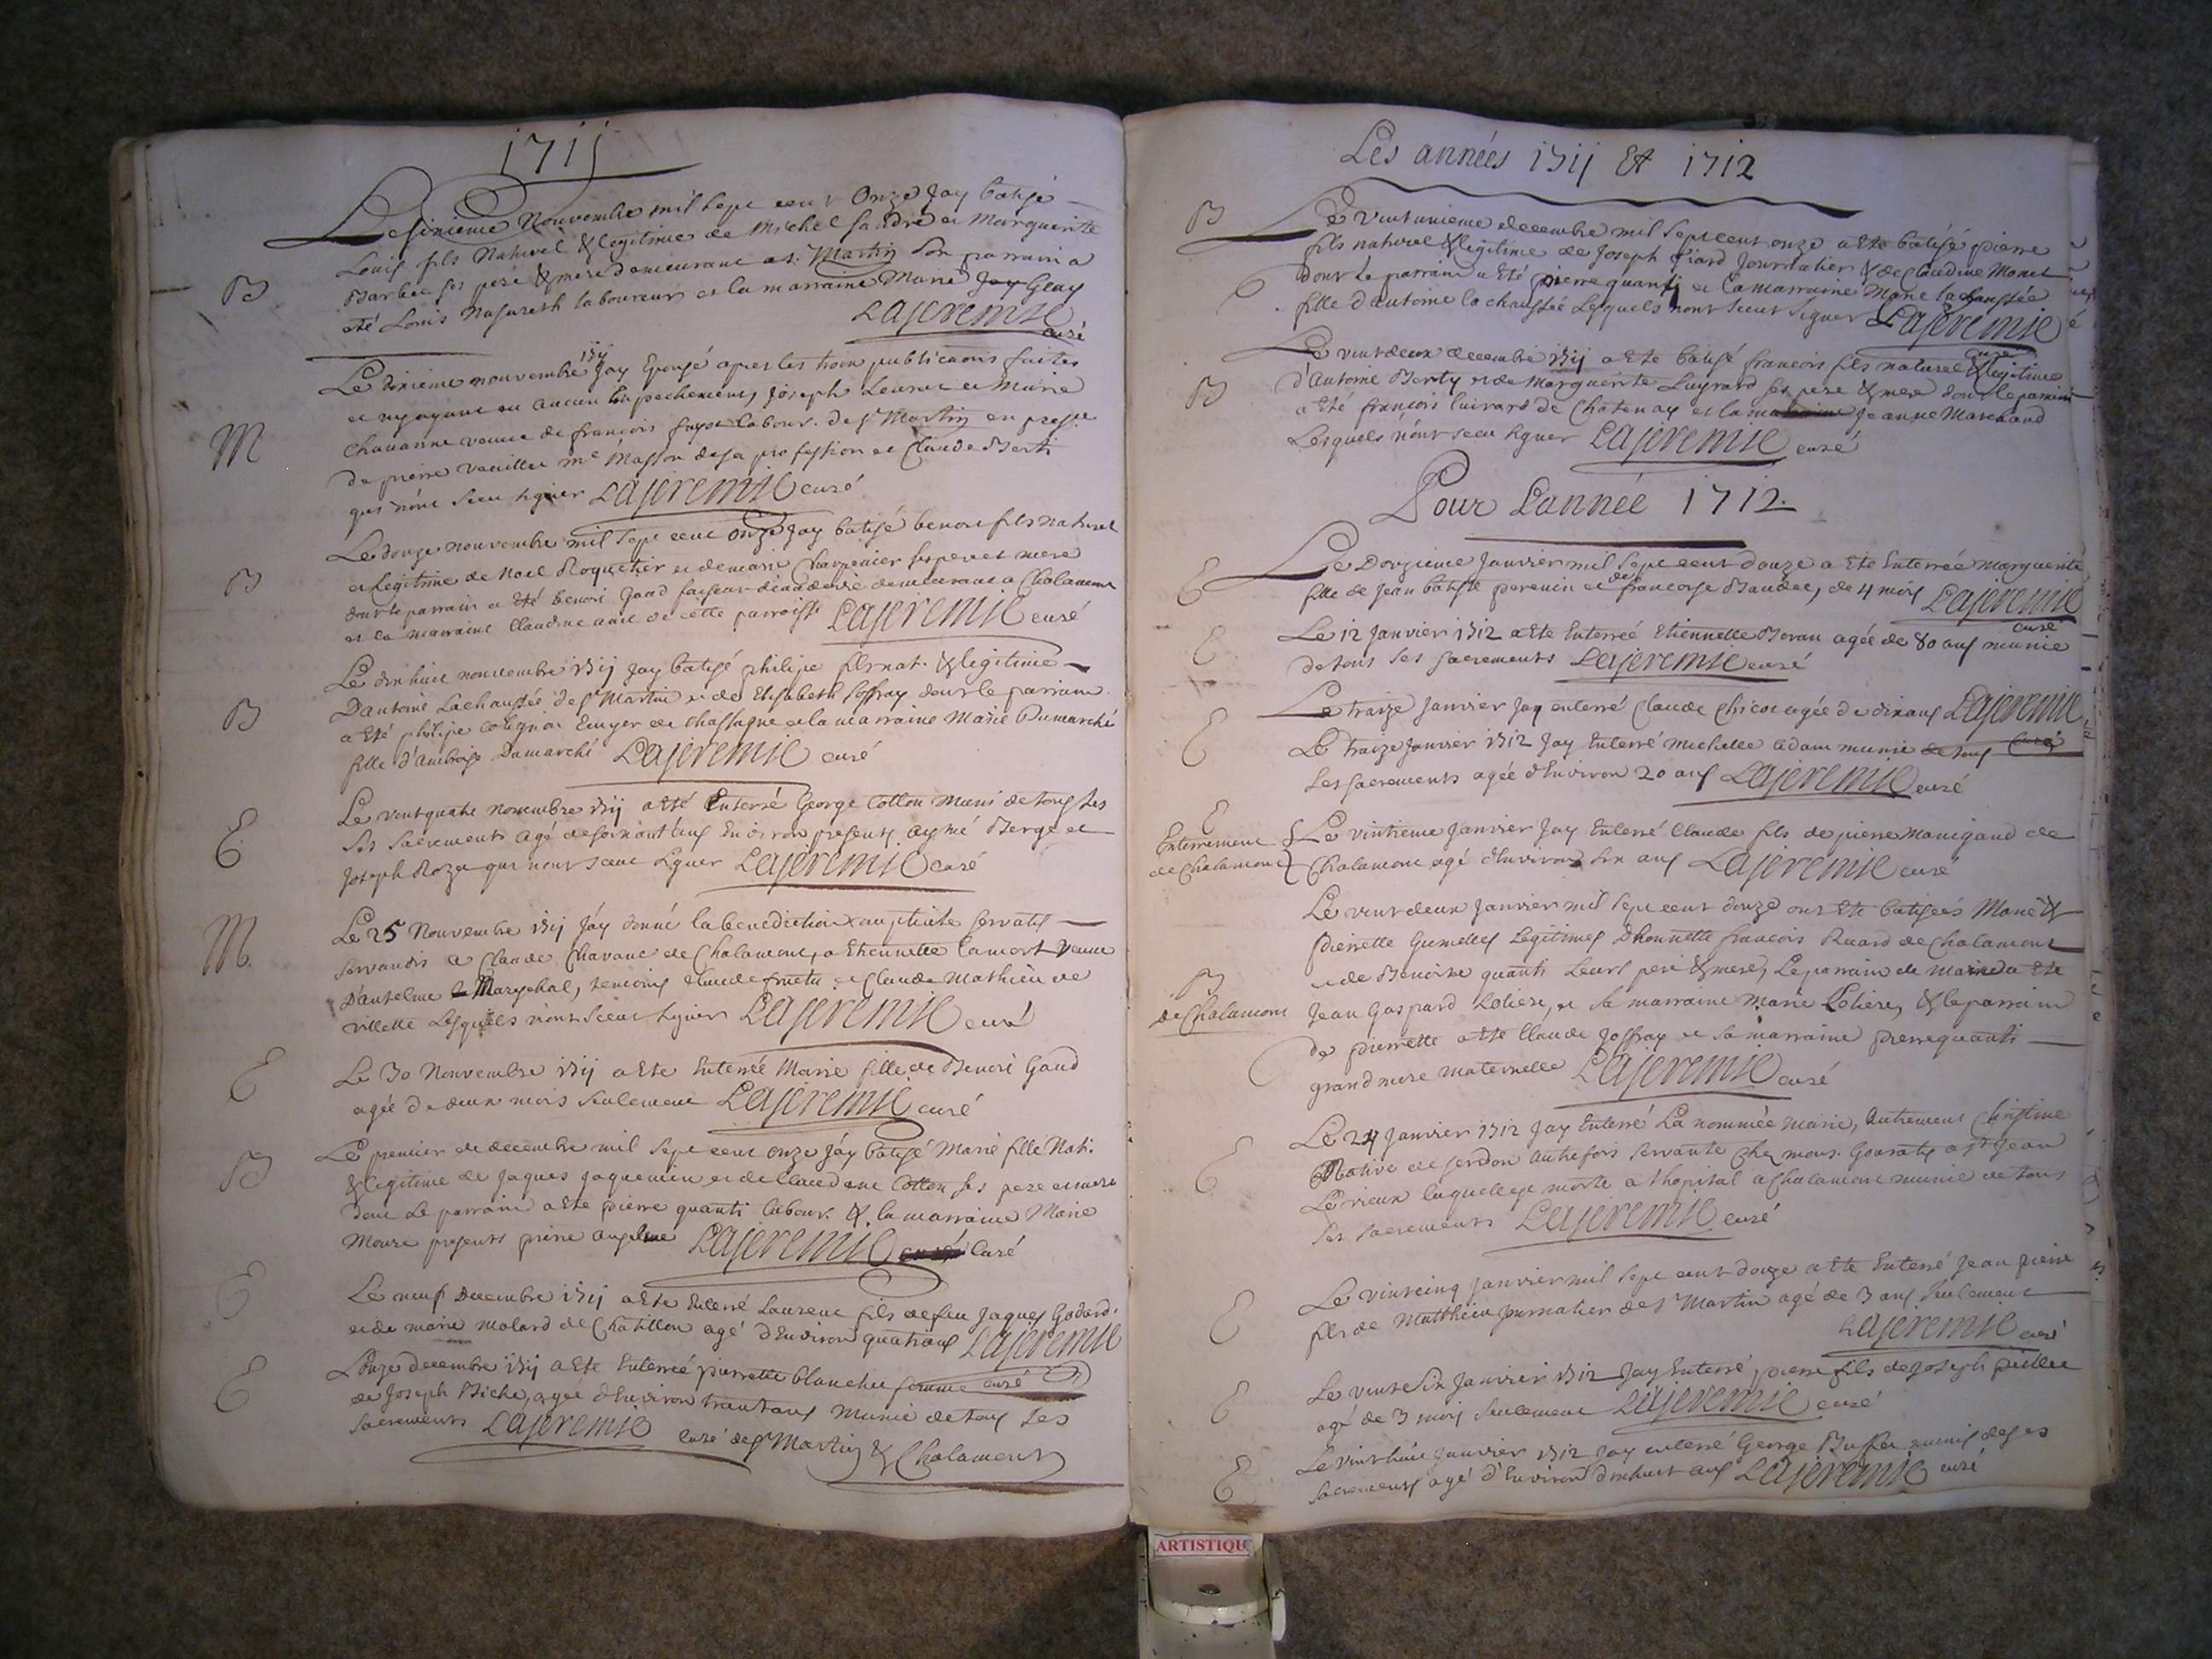 1711
Le sixieme Nouvembre mil sept cent Onze Jay batisé
Louis fils Naturel & legitime de Michel fandre et Marguerite
Barbet ses pere & mere demeurant a st Martin Son parrain a
B
été Louis Nasareth laboureur et la marraine Marie Jay Geay
Lajeremie
curé
Le dixieme nouvembre 1711 Jay Epousé apres les trois publications faites
et n'y ayant eu aucun Enpechement, Joseph et Marie
Chavanne veuve de francois labour. de st Martin en prese.
M
de pierre me Masson de sa profession et Claude Berti
qui n'ont sceu signer Lajeremie curé
Le douze nouvembre mil sept cent onze Jay batisé benoit fils naturel
et legitime de Noel Roquetir et de marie Charpentier ses pere et mere
B
dont le parrain a Eté benoit Gaud faiseur d'eau de vie demeurant a Chalamont
et la marraine Claudine ame de cette parroisse Lajeremie curé
Le dix huit nouvembre 1711 Jay batisé philipe fils nat. & legitime
D'antoine Lachaussée de st Martin et de Elisabeth Joffray dont le parrain
B
a Eté philipe Ecuyer de Chassagne et la marraine Marie Dumarché
fille d'Ambroise Dumarché Lajeremie curé
Le vint quatre nouvembre 1711 a Eté Enterré George Cotton Muni de tous ses
E
Ses Sacrements agé de soixant'ans Environ presents Aymé Berge et
Joseph Roza qui n'ont sceu signer Lajeremie curé
Le 25 Nouvembre 1711 Jay donné la benediction nuptiale servatis
M.
servandis a Claude Chavanc de Chalamont, a Etiennette Lamort veuve
D'antelme Maryshal, temoins Claude fruetu et Claude Mathieu de
villette Lesquels n'ont sceu signer Lajeremie curé
Le 30 Nouvembre 1711 a Ete Enterrée Marie fille de Benoit Gaud
E
agée de deux mois seulement Lajeremie curé
Le premier de decembre mil sept cent onze Jay batisé Marie fille Nat.
B
& legitime de Jaques Jaquemin et de Claudine Cotton ses pere et mere
dont Le parrain a Ete pierre quanti labour. & la marraine Marie
Moure presents pierre Lajeremie curé
Le neuf Decembre 1711 a Ete Enterré Laurent fils de feu Jaques Godard
E
et de marie molard de Chatillon agé d'Environ quatr'ans Lajeremie
curé
L'onze decembre 1711 a Ete Enterrée pierrette blanchet femme
E
de Joseph Biche, agée d'Environ trant'ans Munie de tous ses
sacrements Lajeremie curé de st Martin & Chalamont
Les années 1711 Et 1712
B
Le vint unieme decembre mil sept cent onze a Ete batisé pierre
fils naturel & legitime de Joseph piard Journalier & de Claudine Monet
dont Le parrain a Eté pierre quanti et La marraine Marie lachaussée
fille d'antoine la chaussée Lesquels n'ont sceu signer Lajeremie
curé
Le vint deux decembre 1711 a Ete batisé francois fils naturel & legitime
B
d'Antoine Berty et de Marguerite Luyrard ses pere & mere dont le parrain
a Eté francois luirard de Chatenay et la Jeanne Marchand
Lesquels n'ont sceu signer Lajeremie curé
Pour L'année 1712
Le Douzieme Janvier mil sept cent douze a Ete Enterrée Marguerite
E
fille de Jean batiste perenin et de francoise Baudet, de 4 mois Lajeremie
curé
E
Le 12 Janvier 1712 a Ete Enterreé Etiennette Beran agée de 80 ans munie
de tous ses sacrements Lajeremie curé
E
Le traize Janvier Jay enterré Claude Chicot agée de dix ans Lajeremie
curé
Le traize Janvier 1712 Jay Enterré Michelle adam munie de tous
ses sacrements agée d'Environ 20 ans Lajeremie curé
E
Enterrement
de Chalamont
Le vintieme Janvier Jay Enterré Claude fils de pierre Manigand de
Chalamont agé d'Environ six ans Lajeremie curé
Le vint deux Janvier mil sept cent douze ont Ete batisées Marie &
pierrette Gumelles Legitimes D'honnette francois Ruard de Chalamont
B
de Chalamont
et de Benoite quanti Leurs pere & mere, Le parrain de Marie a Ete
Jean Gaspard Lotiere, et Sa marraine Marie Lotiere, & le parrain
de pierrette a ete Claude Joffray et sa marraine pierre quanti
grand mere maternelle Lajeremie curé
Le 24 Janvier 1712 Jay Enterré La nommée Marie, Autrement Christine
E
Native de serdon autrefois servante Chez mons. Gousaty a st Jean
Le vieux laquelle est morte a l'hopital a Chalamont munie de tous
ses sacrements Lajeremie curé
Le vint cinq Janvier mil sept cent douze a Ete Enterré Jean pierre
E
fils de Matthieu Journalier de st Martin agé de 3 ans seulement
Lajeremie curé
Le vint six Janvier 1712 Jay Enterré pierre fils de Joseph
E
agé de 3 mois seulement Lajeremie curé
Le vint huit Janvier 1712 Jay enterré George Buffet munis de ses
E
sacrements agé d'Environ dixhuit ans Lajeremie curé
ARTISTIQU